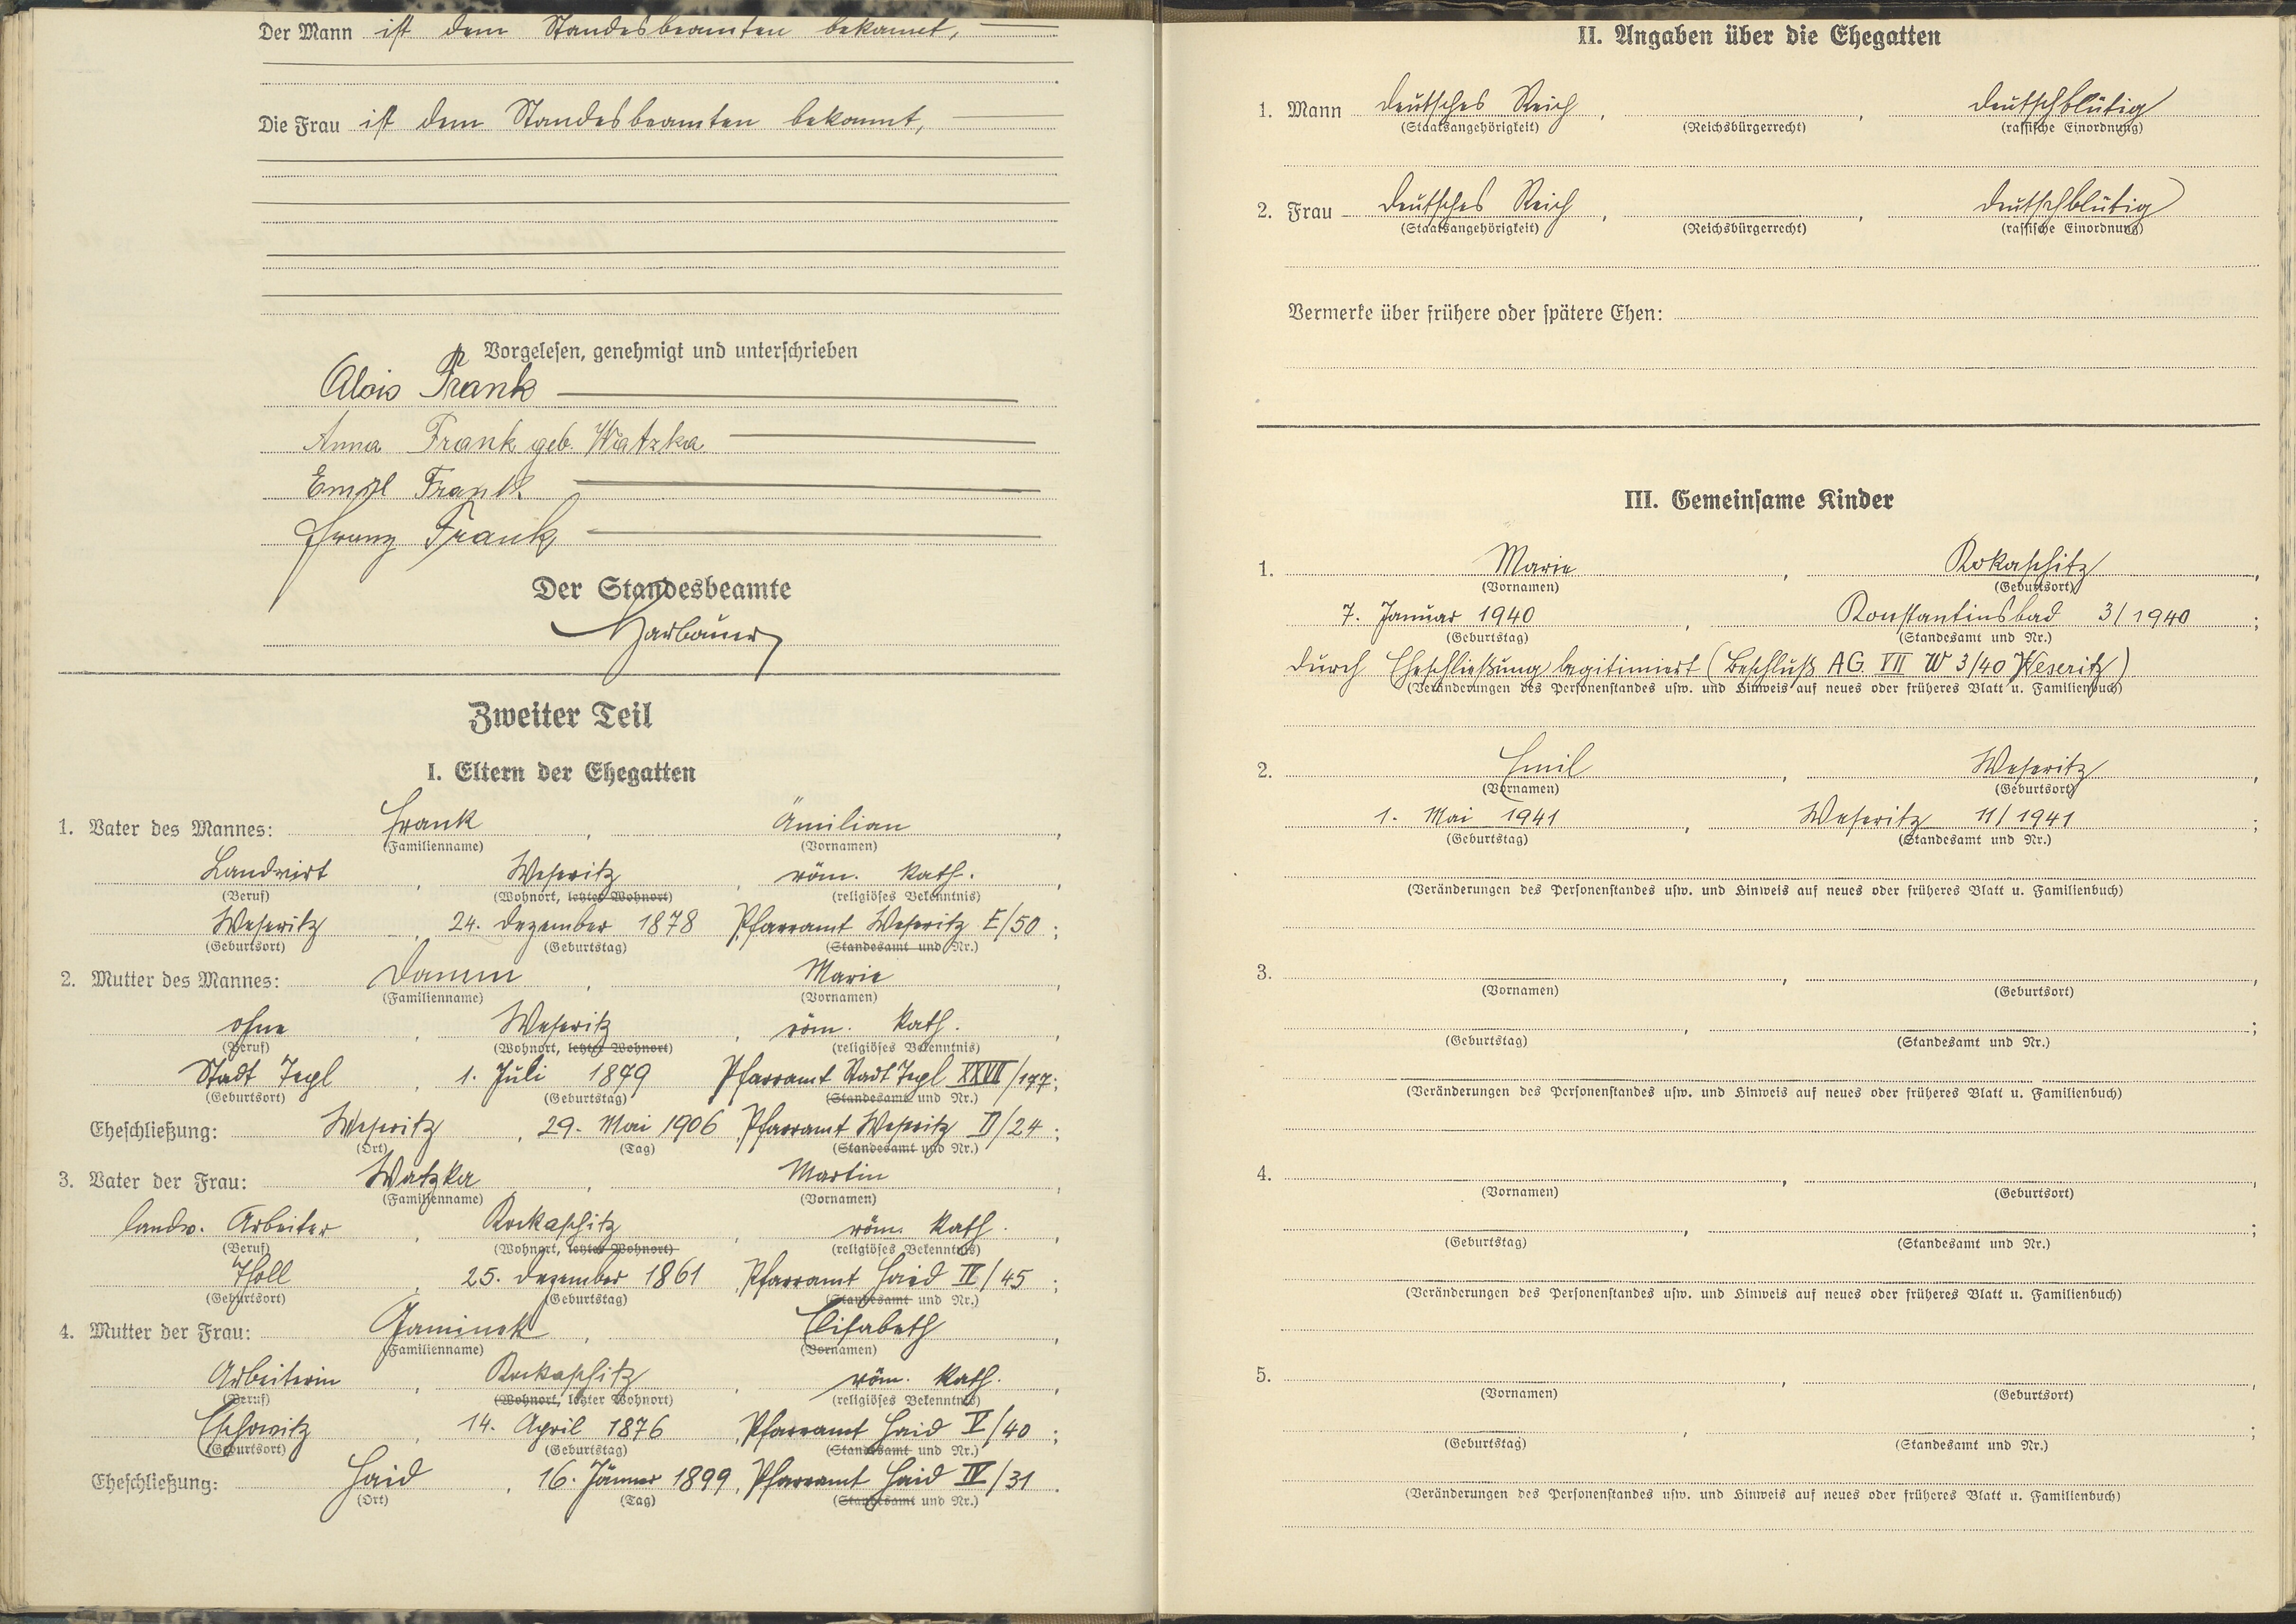 Der Mann ist dem Standesbeamten bekannt,
Die Frau ist dem Standesbeamten bekannt,
Vorgelesen, genehmigt und unterschrieben
Alois Frank
Anna Frank geb. Watzka
Emil Frank
Franz Frank
Der Standesbeamte
Zweiter Teil
I. Eltern der Ehegatten
1. Vater des Mannes: Frank, Ämilian,
(Familienname) (Vornamen)
Landwirt, Weseritz, röm. kath.,
(Beruf) (Wohnort, letzter Wohnort) (religiöses Bekenntnis)
Weseritz, 24. Dezember 1878 Pfarramt Weseritz E/50;
(Geburtsort) (Geburtstag) (Standesamt und Nr.)
2. Mutter des Mannes: Damm, Marie,
(Familienname) (Vornamen)
ohne, Weseritz, röm. kath.,
(Beruf) (Wohnort, letzter Wohnort) (religiöses Bekenntnis)
Stadt Tepl, 1. Juli 1879 Pfarramt Stadt Tepl XXVII/177;
(Geburtsort) (Geburtstag) (Standesamt und Nr.)
Eheschließung: Weseritz, 29. Mai 1906 Pfarramt Weseritz D/24;
(Ort) (Tag) (Standesamt und Nr.)
3. Vater der Frau: Watzka, Martin,
(Familienname) (Vornamen)
landw. Arbeiter, Rokaschitz, röm. kath.,
(Beruf) (Wohnort, letzter Wohnort) (religiöses Bekenntnis)
Tholl, 25. Dezember 1861, Pfarramt Haid IV/45;
(Geburtsort) (Geburtstag) (Standesamt und Nr.)
4. Mutter der Frau: Jaminek, Elisabeth,
(Familienname) (Vornamen)
Arbeiterin, Rokaschitz, röm. kath.,
(Beruf) (Wohnort, letzter Wohnort) (religiöses Bekenntnis)
Eschowitz, 14. April 1876, Pfarramt Haid V/40;
(Geburtsort) (Geburtstag) (Standesamt und Nr.)
Eheschließung: Haid, 16. Jänner 1899, Pfarramt Haid IV/31.
(Ort) (Tag) (Standesamt und Nr.)
II. Angaben über die Ehegatten
1. Mann Deutsches Reich, , deutschblütig
(Staatsangehörigkeit) (Reichsbürgerrecht) (rassische Einordnung)
2. Frau Deutsches Reich, , deutschblütig
(Staatsangehörigkeit) (Reichsbürgerrecht) (rassische Einordnung)
Vermerke über frühere oder spätere Ehen:
III. Gemeinsame Kinder
1. Marie, Rokaschitz,
(Vornamen) (Geburtsort)
7. Januar 1940, Konstantinsbad 3/1940;
(Geburtstag) (Standesamt und Nr.)
durch Eheschließung legitimiert (Beschluß AG VII W 3/40 Weseritz)
(Veränderungen des Personenstandes usw. und Hinweis auf neues oder früheres Blatt u. Familienbuch)
2. Emil, Weseritz,
(Vornamen) (Geburtsort)
1. Mai 1941, Weseritz 11/1941;
(Geburtstag) (Standesamt und Nr.)
(Veränderungen des Personenstandes usw. und Hinweis auf neues oder früheres Blatt u. Familienbuch)
3. , ,
(Vornamen) (Geburtsort)
, ;
(Geburtstag) (Standesamt und Nr.)
(Veränderungen des Personenstandes usw. und Hinweis auf neues oder früheres Blatt u. Familienbuch)
4. , ,
(Vornamen) (Geburtsort)
, ;
(Geburtstag) (Standesamt und Nr.)
(Veränderungen des Personenstandes usw. und Hinweis auf neues oder früheres Blatt u. Familienbuch)
5. , ,
(Vornamen) (Geburtsort)
, ;
(Geburtstag) (Standesamt und Nr.)
(Veränderungen des Personenstandes usw. und Hinweis auf neues oder früheres Blatt u. Familienbuch)